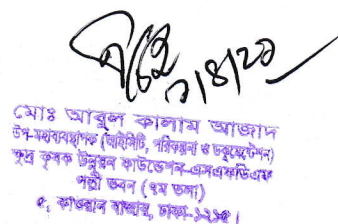 ৭/৪/২১
মোঃ আবুল কালাম আজাদ
উপ-মহাব্যবস্থাপক (আইসিটি, পরিকল্পনা ও ডকুমেন্টেশন)
ক্ষুদ্র কৃষক উন্নয়ন ফাউন্ডেশন-এসএফডিএফ
পল্লী ভবন (৭ম তলা)
৫, কাওরান বাজার, ঢাকা-১২১৫।